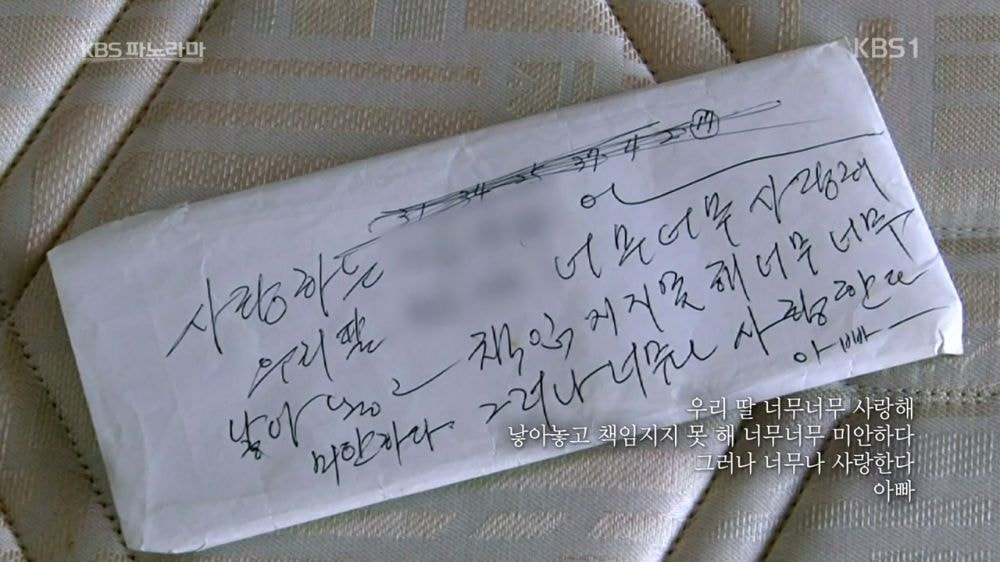 KBS 파노라마
KBS1
31 34 25 37 4 2 17
사랑하는 너무너무 사랑해
우리 딸
낳아 놓고 책임지지 못 해 너무 너무
미안하다 그러나 너무나 사랑한다
아빠
우리 딸 너무너무 사랑해
낳아놓고 책임지지 못 해 너무너무 미안하다
그러나 너무나 사랑한다
아빠